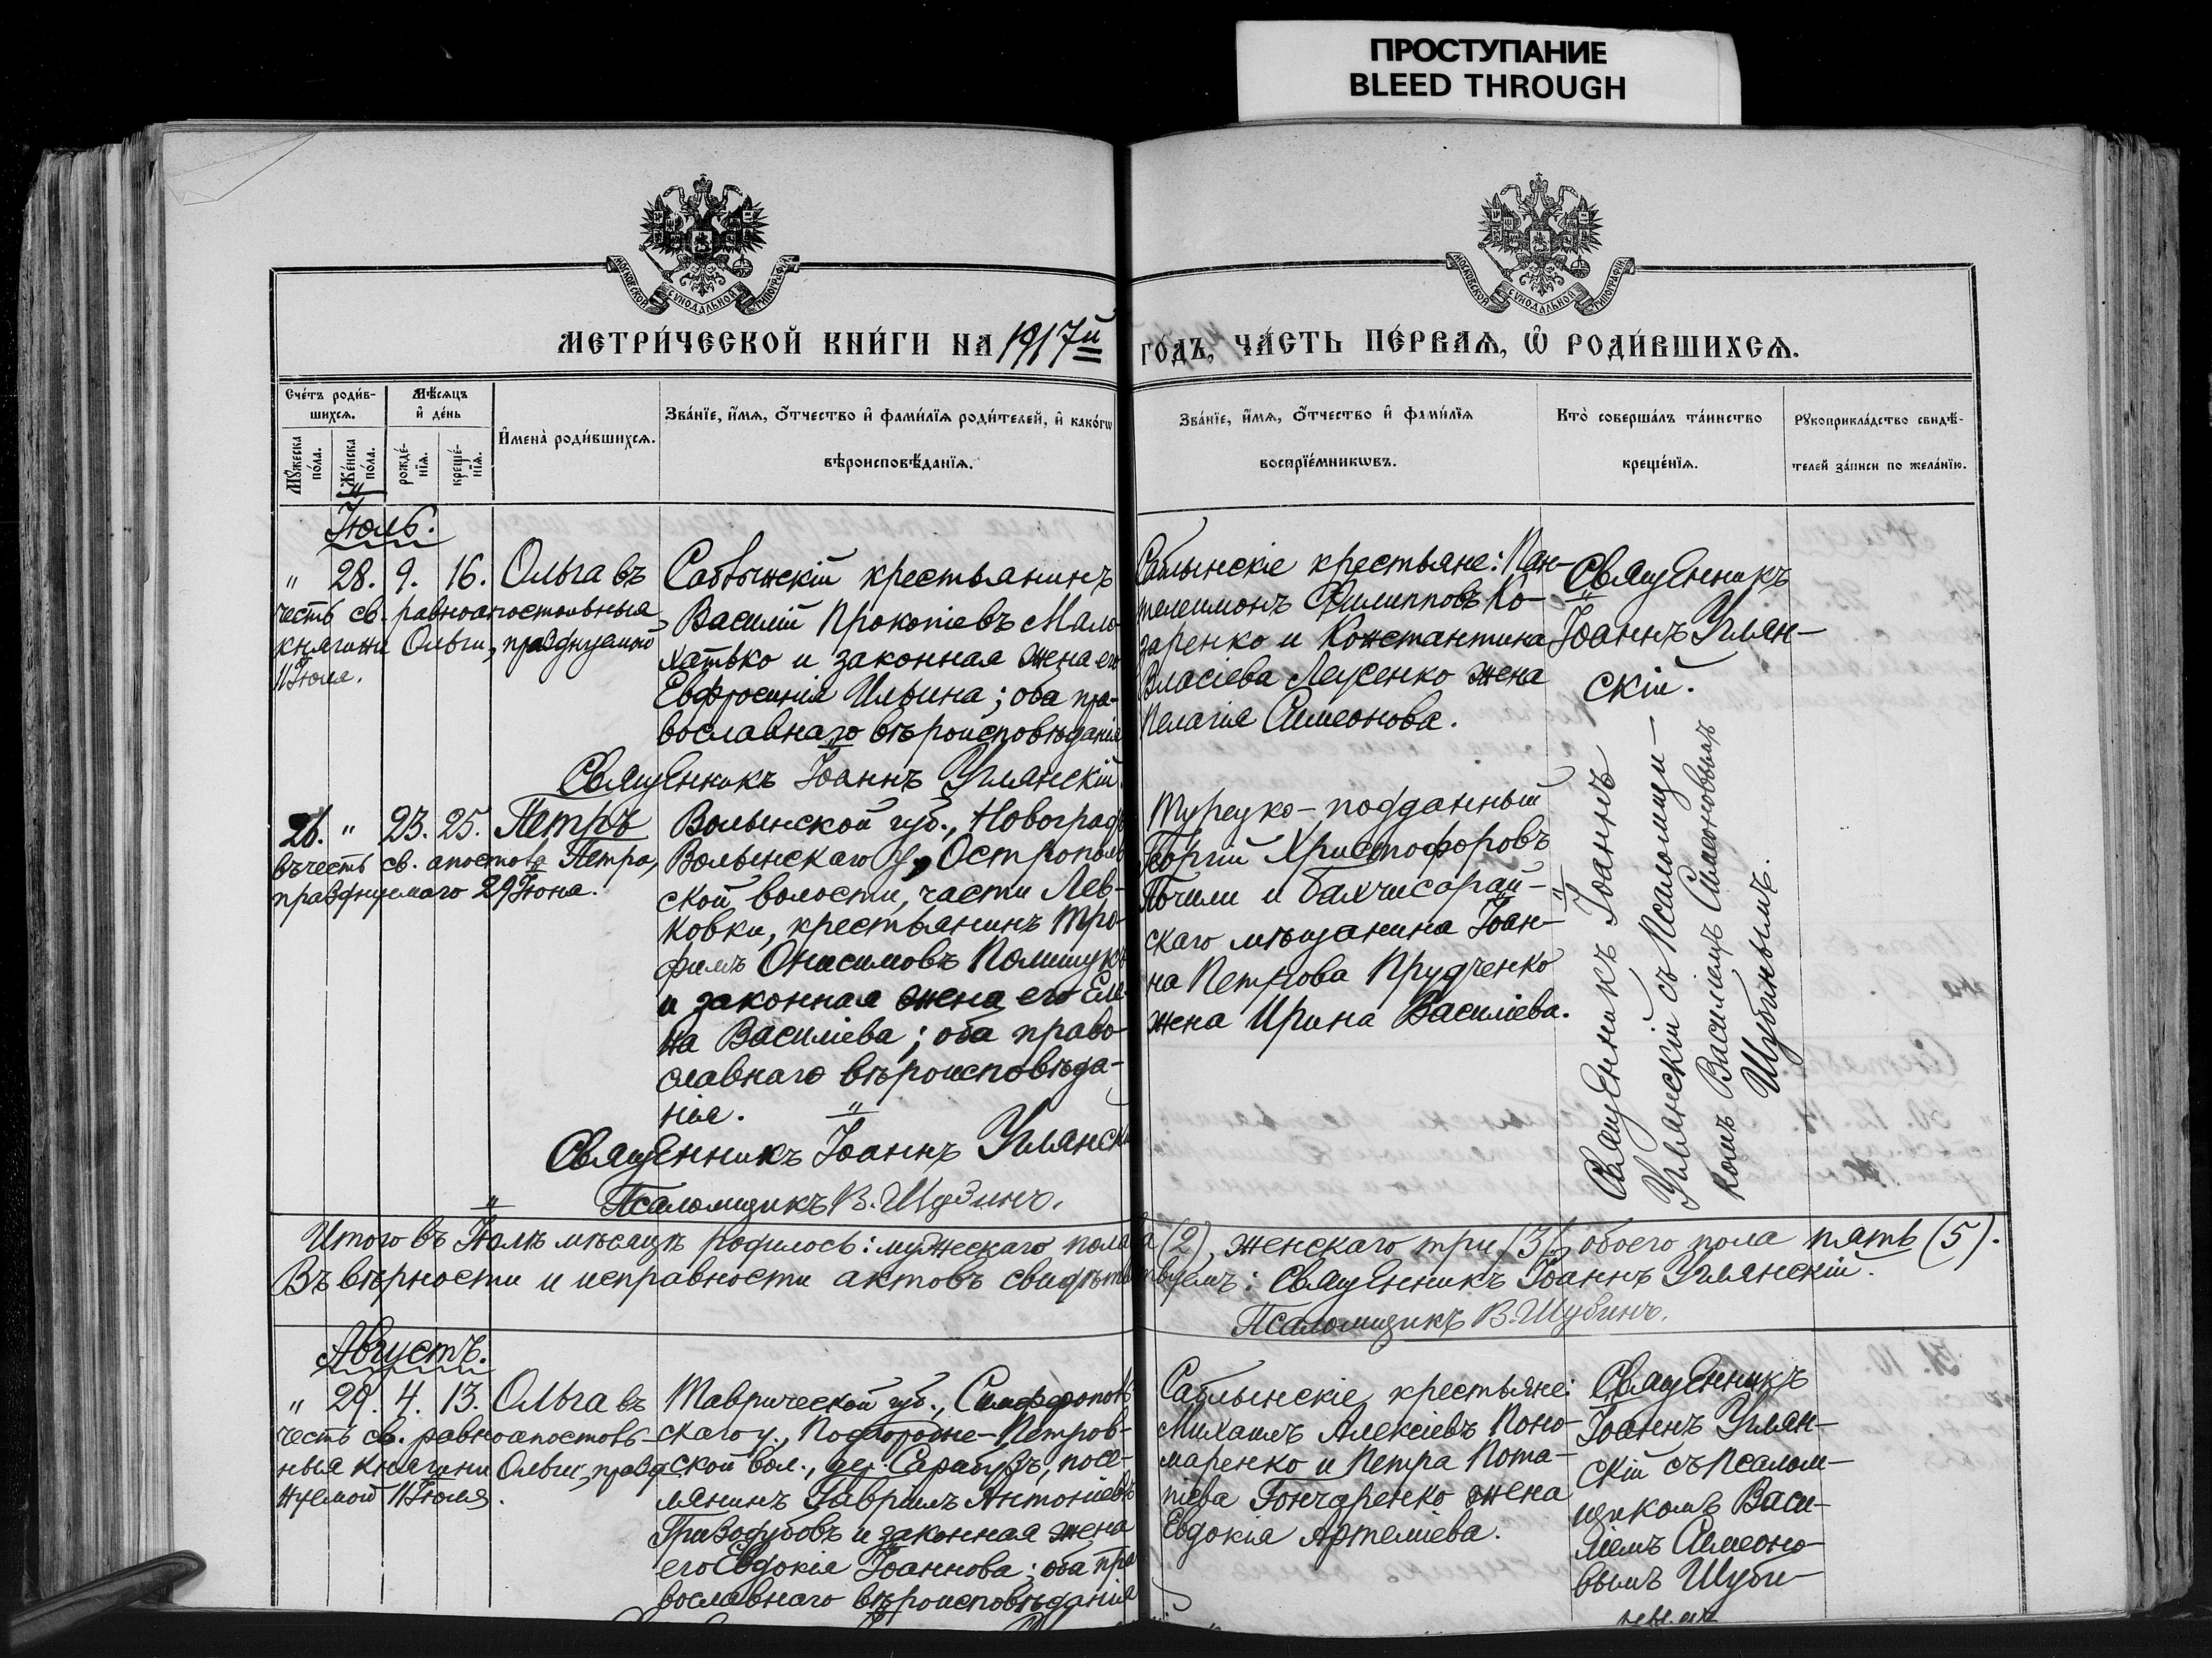 ПРОСТУПАНИЕ
BLEED THROUGH
МОСКОВСКОЙ СУНОДАЛЬНОЙ ТИПОГРАФІИ
МОСКОВСКОЙ СУНОДАЛЬНОЙ ТИПОГРАФІИ
МЕТРИ́ЧЕСКОЙ КНИ́ГИ НА 1917й
ГО́ДЪ, ЧА́СТЬ ПЕ́РВАѦ, Ѡ҆ РОДИ́ВШИХСѦ.
Сче́тъ роди́в-
шихсѧ.
Мѣ́сѧцъ
и҆ де́нь
Мꙋ́жеска
по́ла.
Же́нска
по́ла.
рожде́-
нїѧ.
креще́-
нїѧ.
И҆мена̀ роди́вшихсѧ.
Зва́нїе, и҆́мѧ, ѻ҆́тчество и҆ фами́лїѧ роди́телей, и҆ како́гѡ
вѣроисповѣ́данїѧ.
Зва́нїе, и҆́мѧ, ѻ҆́тчество и҆ фами́лїѧ
воспрїе́мникѡвъ.
Кто̀ соверша́лъ та́инство
креще́нїѧ.
Рꙋкоприкла́дство свидѣ́-
телей за́писи по жела́нїю.
Іюль.
" 28. 9. 16. Ольга въ
честь св. равноапостольныя
княгини Ольги, празднуемой
11 Іюля.
Саблынскій крестьянинъ
Василій Прокопіевъ Мало-
хатько и законная жена его
Евфросинія Ильина; оба пра-
вославнаго вѣроисповѣданія
Священникъ Іоаннъ Углянскій.
Саблынскіе крестьяне: Пан-
телеимонъ Филипповъ Ко-
заренко и Константина
Власіева Леусенко жена
Пелагія Симеонова.
Священникъ
Іоаннъ Углян-
скій.
26. " 23. 25. Петръ
въ честь св. апостола Петра,
празднуемаго 29 Іюна.
Волынской губ., Новоградъ
Волынскаго у., Острополь
ской волости, части Лев-
ковки, крестьянинъ Тро-
фимъ Онисимовъ Полищукъ
и законная жена его Еле-
на Василіева; оба право-
славнаго вѣроисповѣда-
нія.
Священникъ Іоаннъ Углянскі
Псаломщикъ В. Шубинъ.
Турецко-подданный
Георгій Христофоровъ
Почили и бахчисарай-
скаго мѣщанина Іоан-
на Петрова Прудченко
жена Ирина Василіева.
Священникъ Іоаннъ
Углянскій съ Псаломщи-
комъ Василіемъ Симеоновымъ
Шубинымъ.
Итого въ Іюлѣ мѣсяцѣ родилось: мужескаго пола два (2), женскаго три (3), обоего пола пять (5).
Въ вѣрности и исправности актовъ свидѣтельствуемъ: Священникъ Іоаннъ Углянскій.
Псаломщикъ В. Шубинъ.
Августъ.
" 29. 4. 13. Ольга въ
честь св. равноапостоль-
ныя княгини Ольги, празд
нуемой 11 Іюля.
Таврической губ., Симферополь-
скаго у., Подгородне-Петров-
ской вол., дер. Сарабузъ, посе-
лянинъ Гавріилъ Антоніевъ
Гризодубовъ и законная жена
его Евдокія Іоаннова; оба пра
вославнаго вѣроисповѣданія
Саблынскіе крестьяне:
Михаилъ Алексіевъ Поно-
маренко и Петра Пота-
піева Гончаренко жена
Евдокія Артеміева.
Священникъ
Іоаннъ Углян-
скій съ Псалом-
щикомъ Васи-
ліемъ Симеоно-
вымъ Шуби-
нымъ